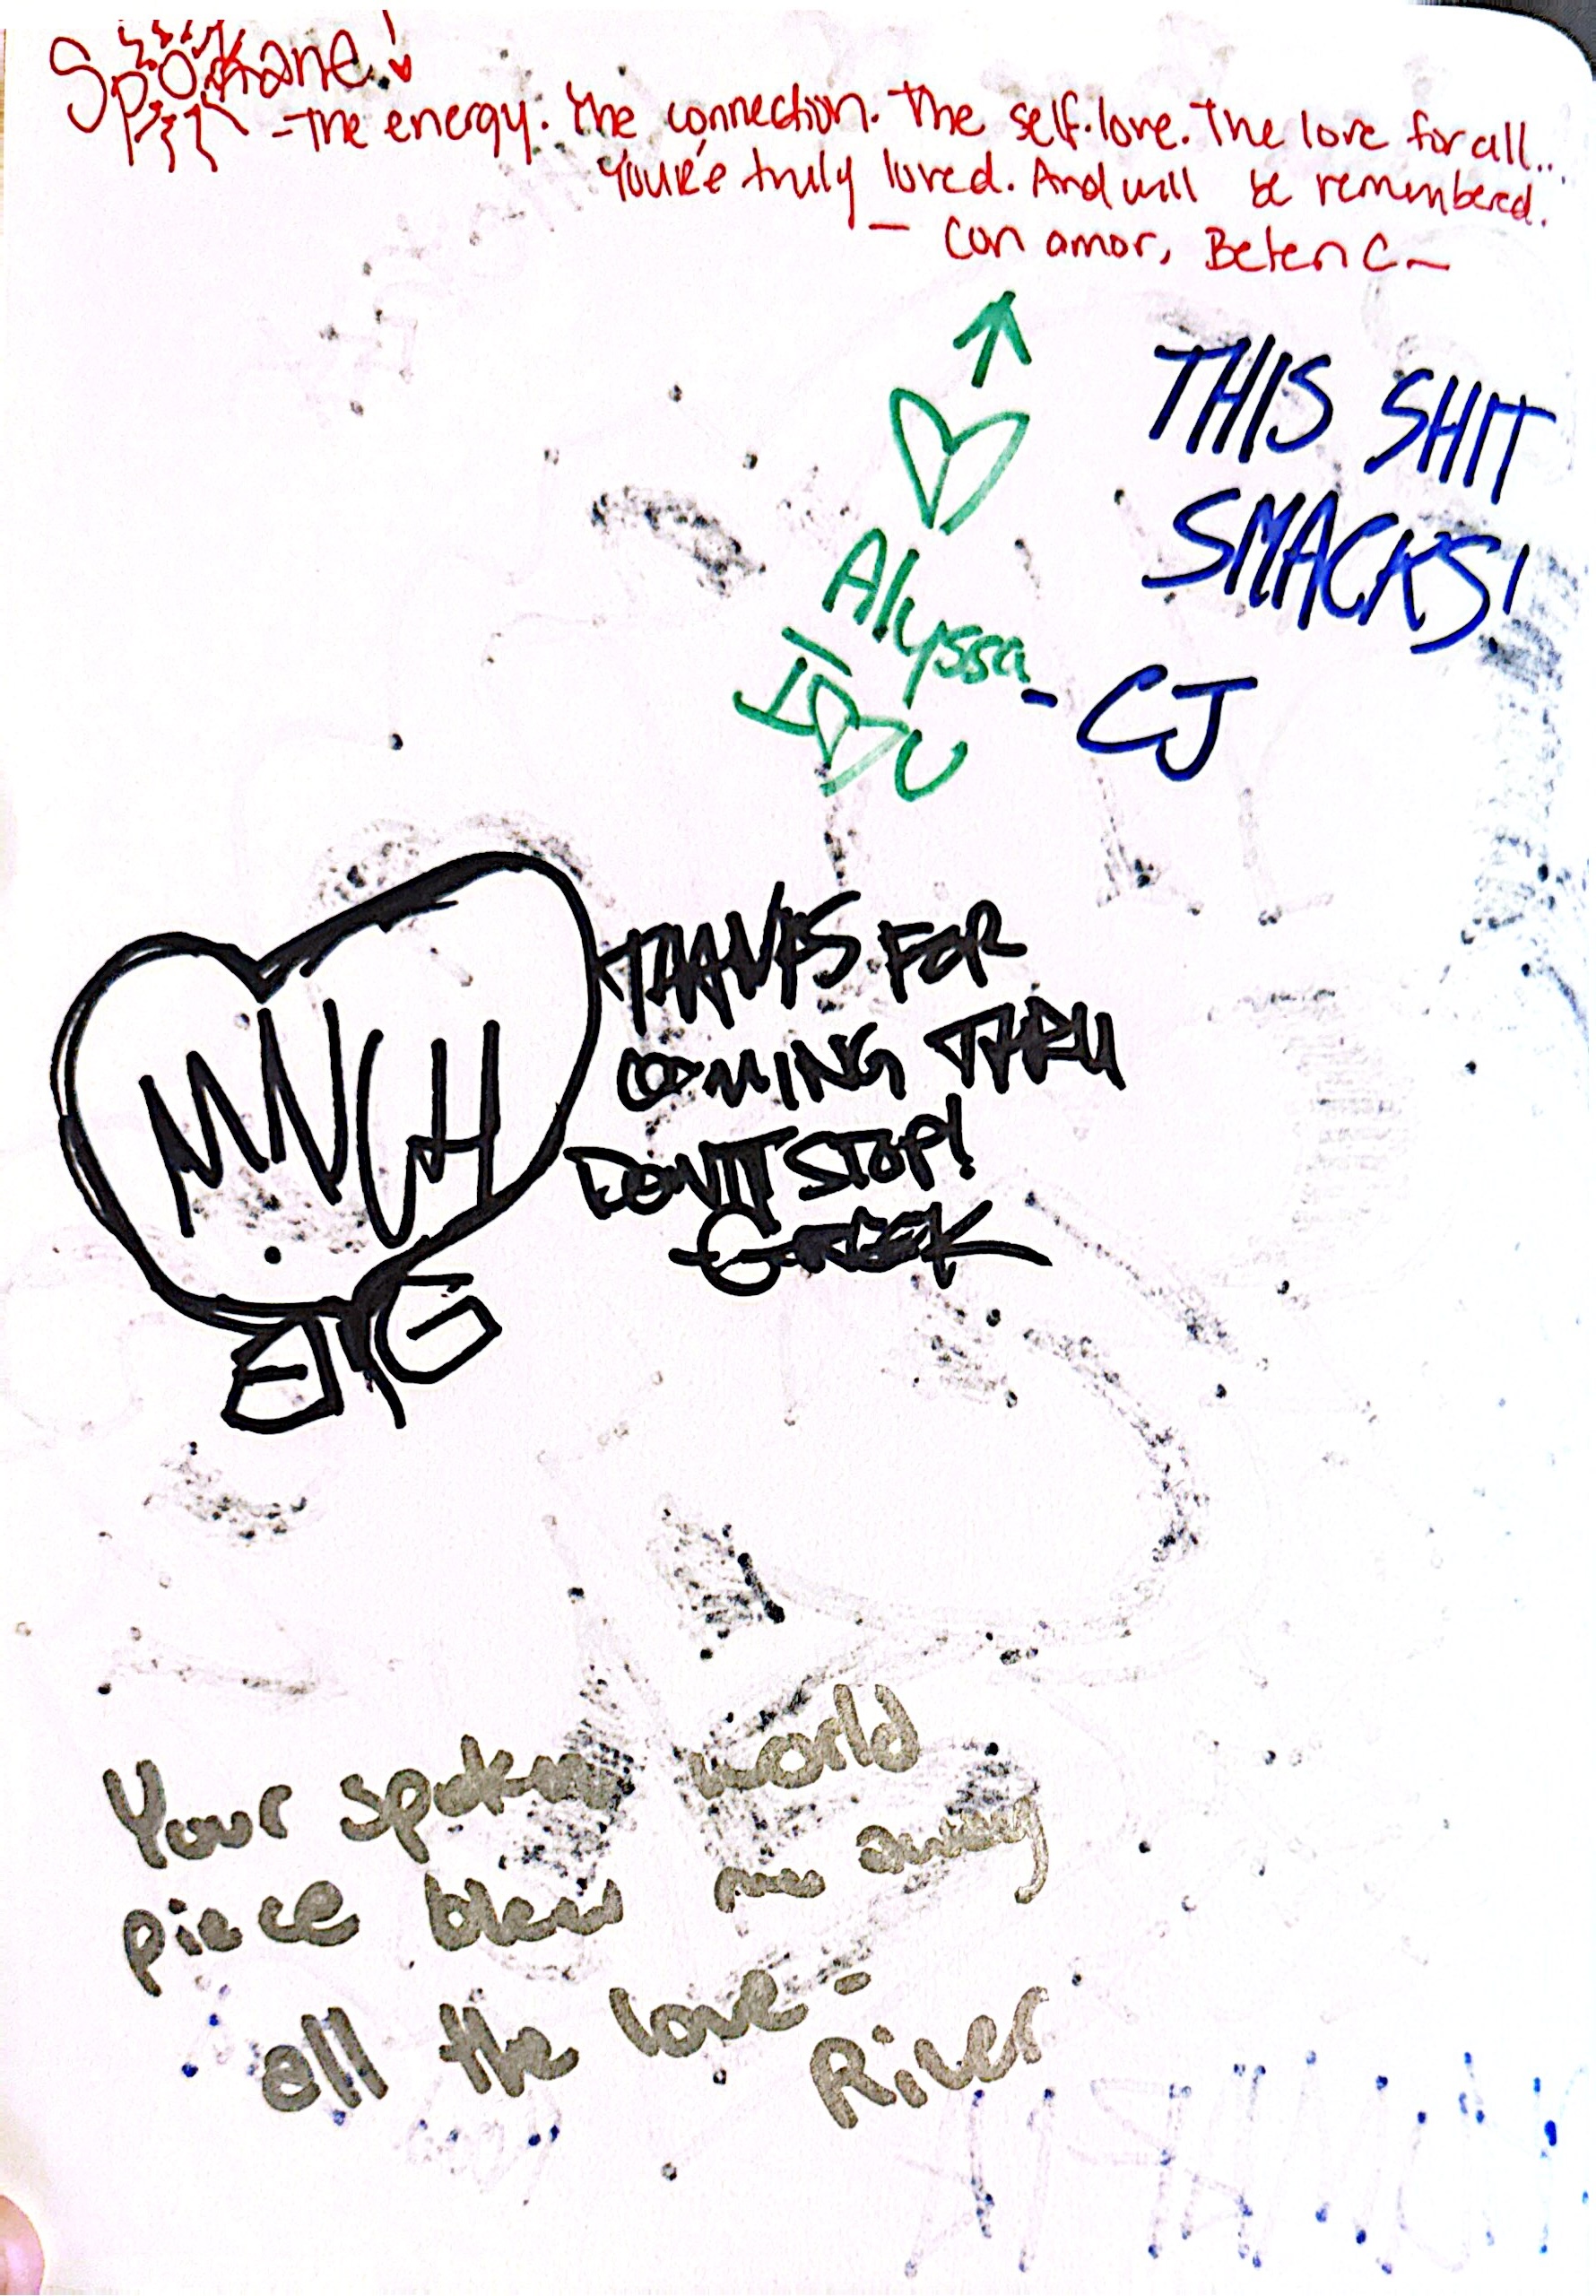 Spokane!
-The energy. The connection. The self-love. The love for all...
You're truly loved. And will be remembered.
- Con amor, Belen C -
THIS SHIT
SMACKS!
- CJ
Alyssa
THANKS FOR
COMING THRU
DON'T STOP!
GREEK
Your spoken world
piece blew me away
all the love -
River